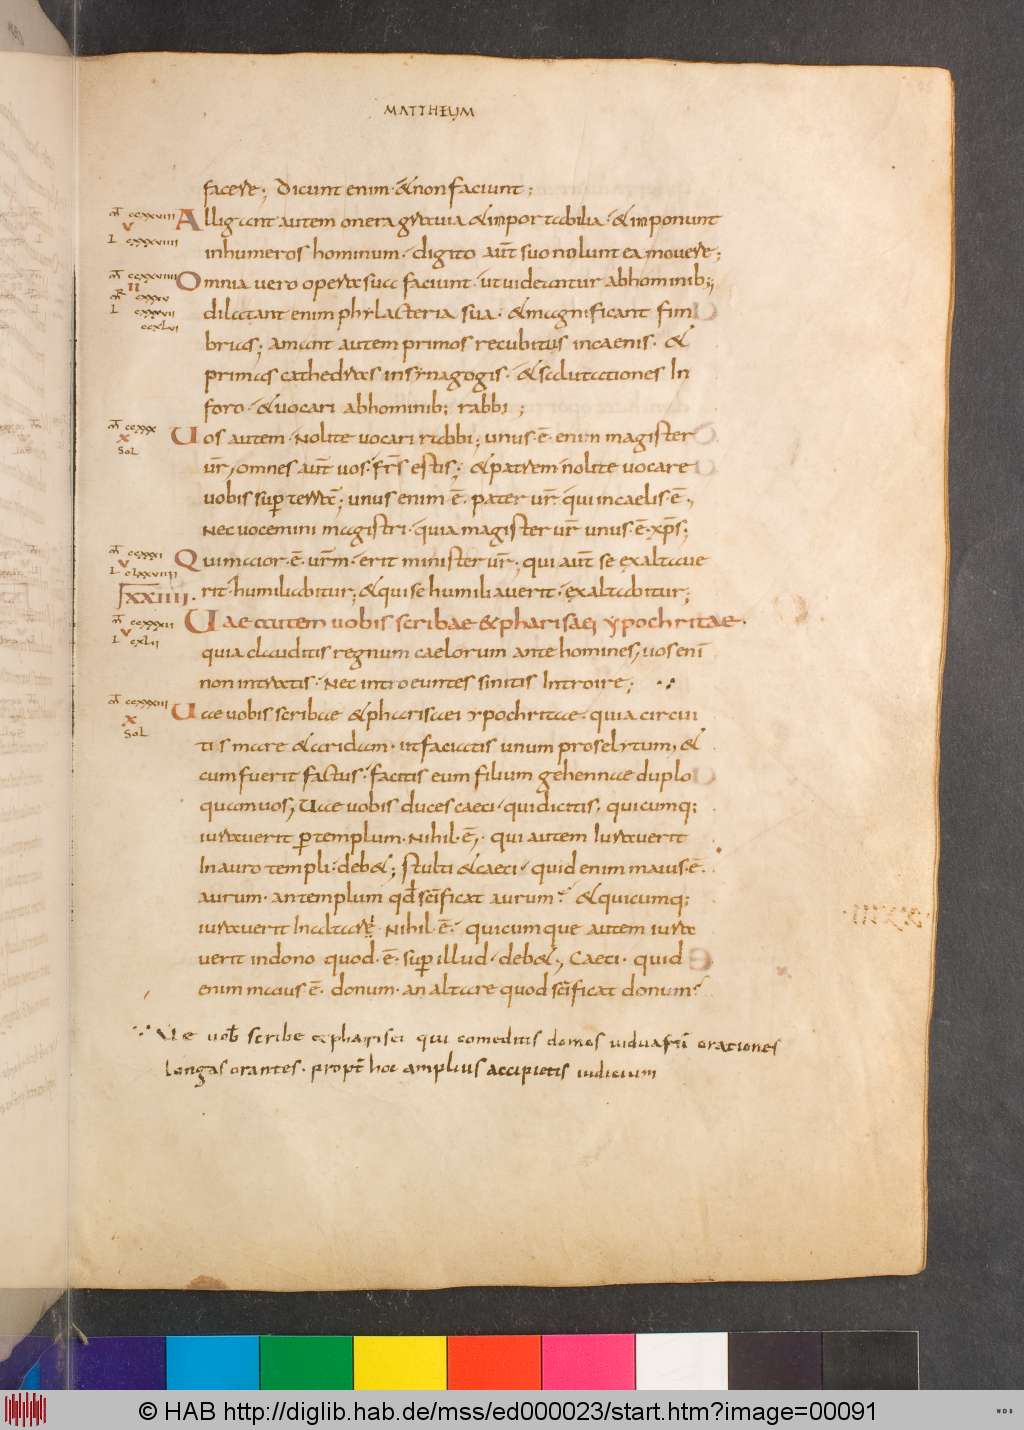 MATTHEUM
facere; Dicunt enim · & non faciunt;
mt ccxxviii
v
L cxxxviiii
Alligant autem onera gravia & inportabilia · & imponunt
in humeros hominum · digito aut̄ suo nolunt ea movere;
mt ccxxviiii
II
mr cxxxv
L cxxxvii
ccxlvi
Omnia vero opera sua faciunt · ut videantur ab hominib;;
dilatant enim phylacteria sua · & magnificant fim
brias; Amant autem primos recubitus in caenis · &
primas cathedras in synagogis · & salutationes In
foro · & vocari ab hominib; rabbi;
mt ccxxx
x
Sol
Uos autem · Nolite vocari rabbi; unus · ē · enim magister
ur̄, omnes aut̄ vos · fr̄s estis; & patrem nolite vocare
vobis sup terrā; unus enim · ē · pater ur̄ · qui in caelis · ē,
Nec vocemini magistri · quia magister ur̄ unus · ē · xp̄s;
mt ccxxxi
v
L clxxviiii
Qui maior · ē · ur̄m · erit minister ur̄; qui aut̄ se exaltave
rit · humiliabitur; & qui se humiliaverit · exaltabitur;
LXXIIII.
mt ccxxxii
v
L cxlii
Uae autem vobis scribae & pharisaei ypochritae ·
quia clauditis regnum caelorum ante homines, vos enī
non intratis · Nec introeuntes sinitis Introire;
mt ccxxxiii
x
Sol
Uae vobis scribae & pharisaei ypochritae · quia circui
tis mare & aridam · ut faciatis unum proselytum, &
cum fuerit factus · facitis eum filium gehennae duplo
quam vos, Uae vobis duces caeci · qui dicitis, quicumq;
iuraverit p templum · Nihil · ē, · qui autem Iuraverit
In auro templi · deb&; stulti & caeci · quid enim maius · ē ·
aurum · an templum qd̄ sc̄ificat aurum? & quicumq;
iuraverit In altare · Nihil · ē · quicumque autem iura
verit in dono quod · ē · sup illud · deb&, Caeci · quid
enim maius · ē · donum · an altare quod sc̄ificat donum?
Ve vob scribe & pharisei qui comeditis domos viduarū orationes
longas orantes · propt̄ hoc amplius accipietis iudicium
© HAB http://diglib.hab.de/mss/ed000023/start.htm?image=00091